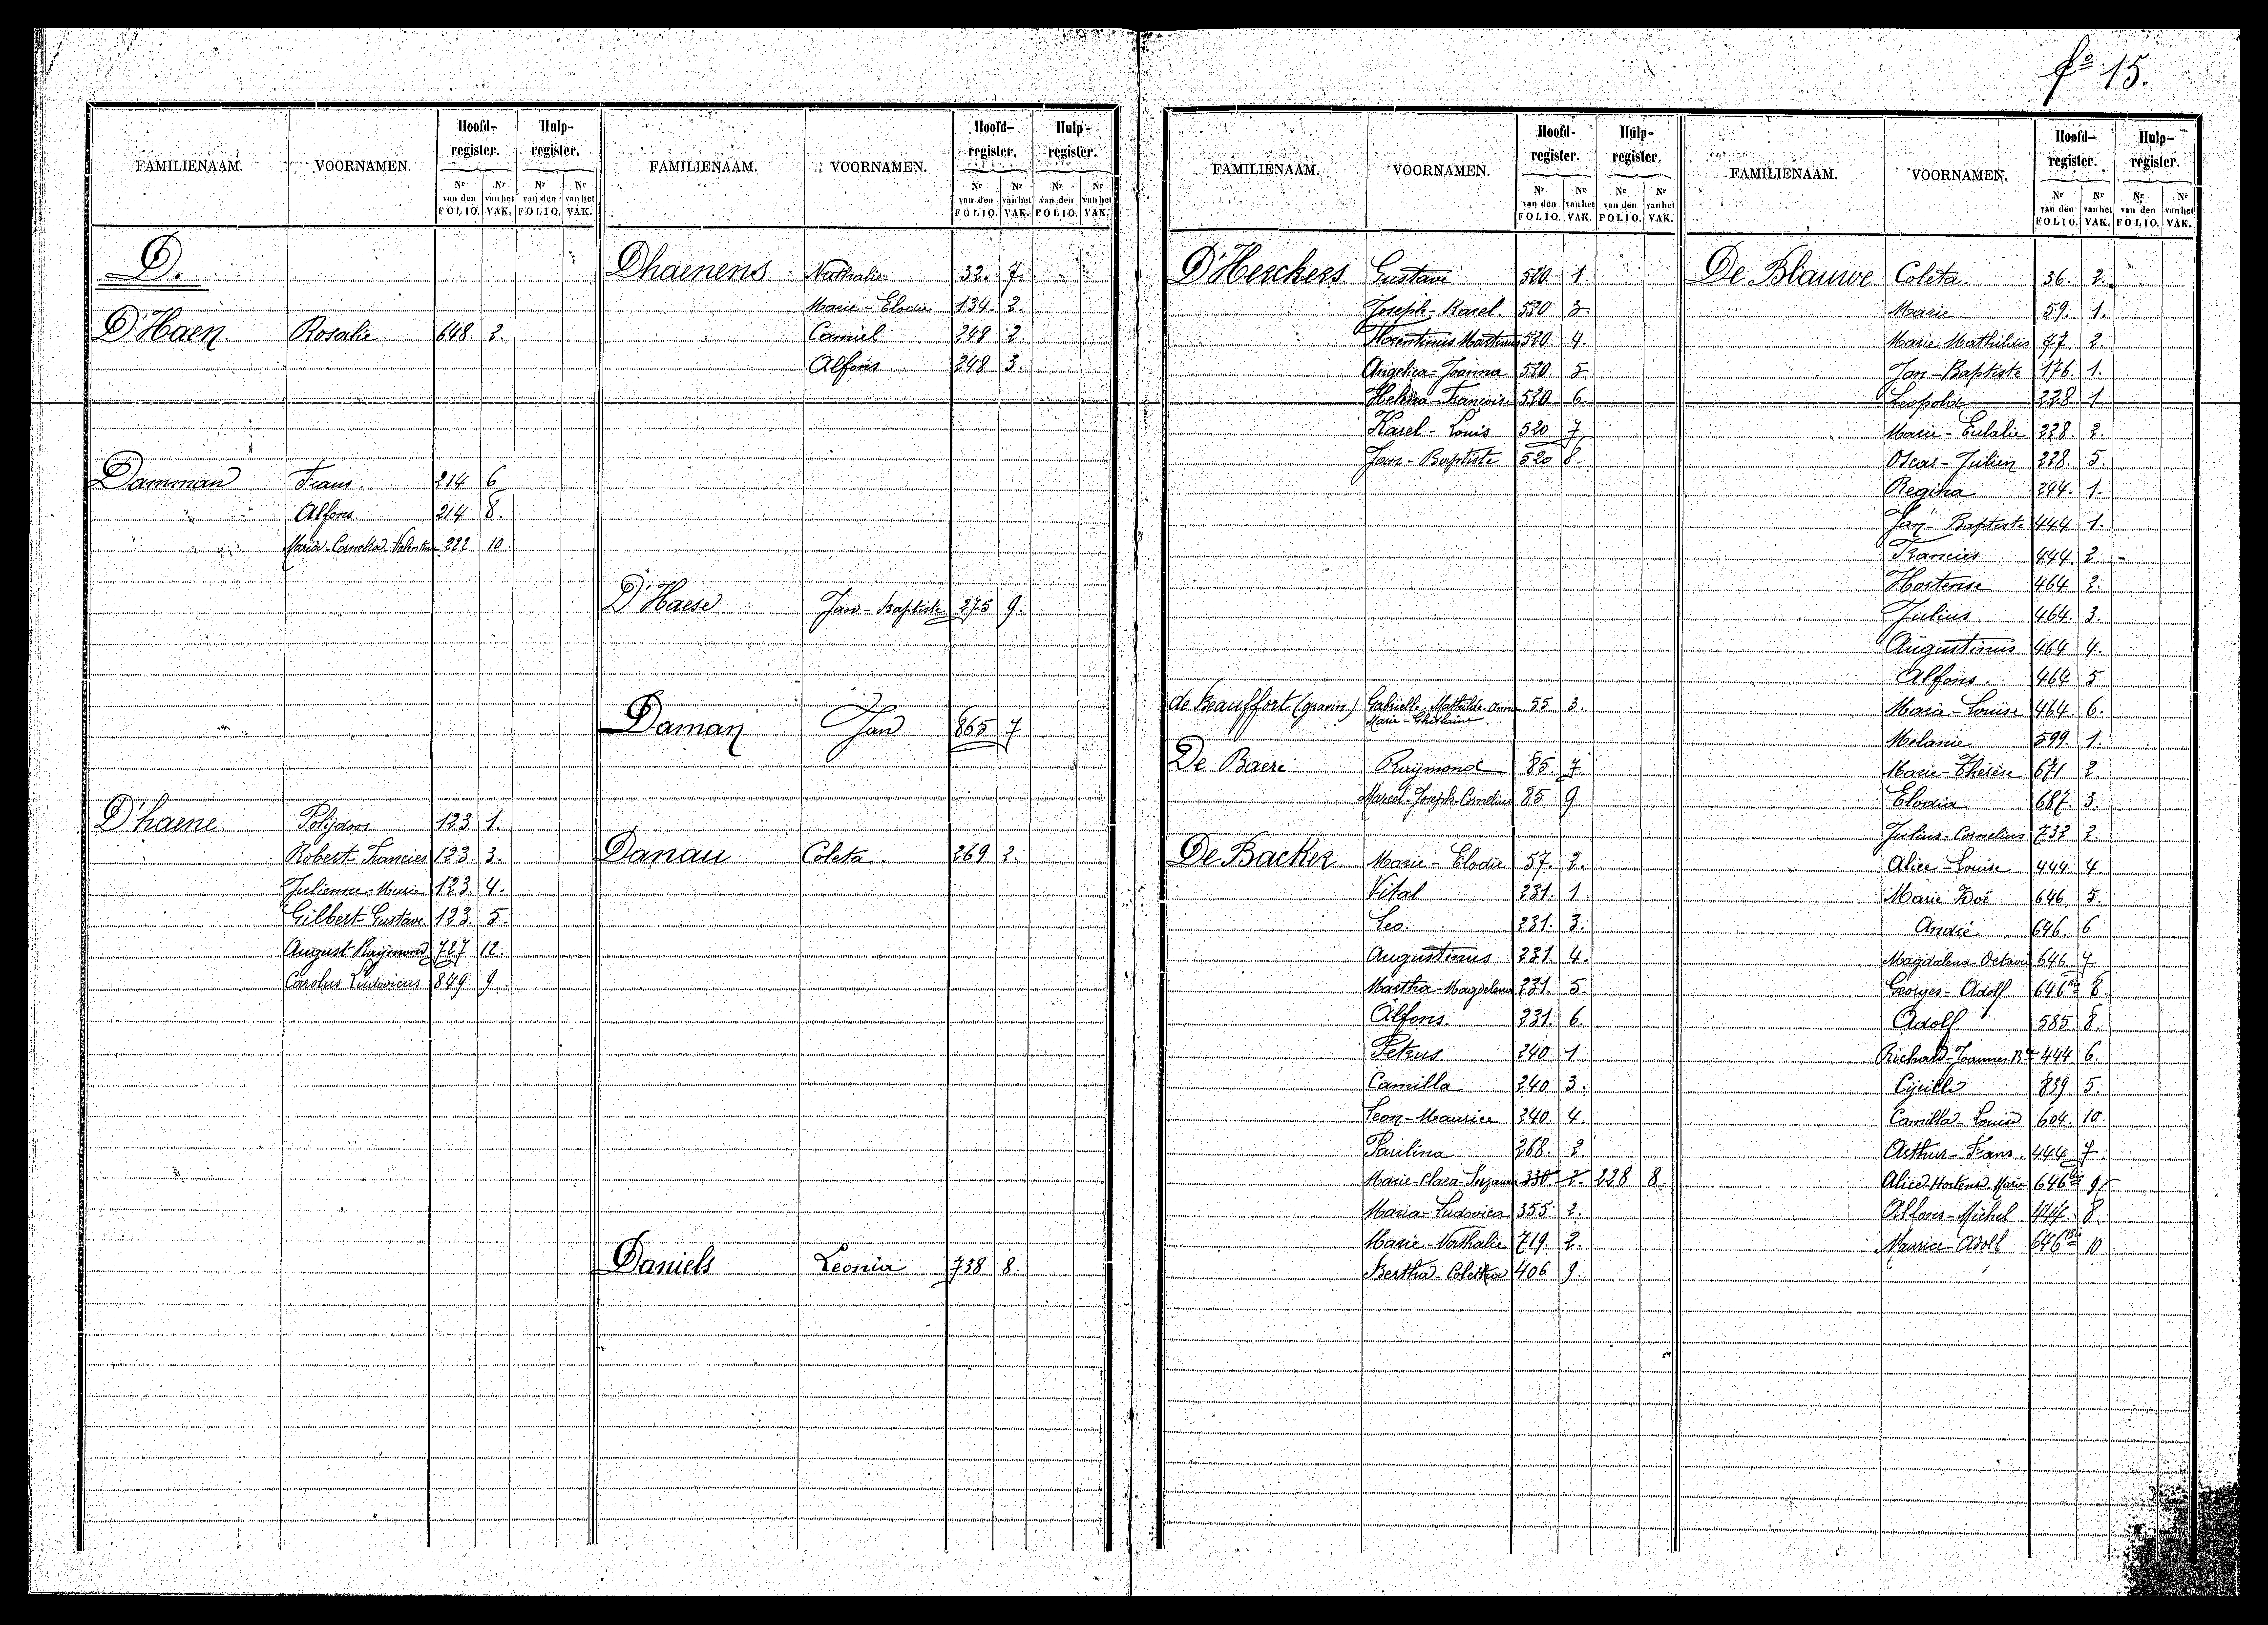 fo 15.
FAMILIENAAM. VOORNAMEN. Hoofd-register. Hulp-register.
Nr van den FOLIO. Nr van het VAK. Nr van den FOLIO. Nr van het VAK.
D.
D'Haen. Rosalie. 648. 2.
Damman Frans. 214 6
Alfons. 214 8.
Maria-Cornelia-Valentine 222 10.
D'haene. Polijdoor 123 1.
Robert-Francies 123. 3.
Julienne-Marie 123. 4.
Gilbert-Gustave. 123. 5.
August-Raijmond 727 12.
Carolus Ludovicus 849 9.
FAMILIENAAM. VOORNAMEN. Hoofd-register. Hulp-register.
Nr van den FOLIO. Nr van het VAK. Nr van den FOLIO. Nr van het VAK.
Dhaenens Nathalie 32. 7.
Marie-Elodie 134. 2.
Camiel 248 2.
Alfons 248 3.
D'Haese Jan-Baptiste 275 9.
Daman Jan 865 7
Danau Coleta. 269 2.
Daniels Leonia 738 8.
FAMILIENAAM. VOORNAMEN. Hoofd-register. Hulp-register.
Nr van den FOLIO. Nr van het VAK. Nr van den FOLIO. Nr van het VAK.
D'Herckers. Gustave 520. 1.
Joseph-Karel. 520 3.
Florentinus Martinus 520. 4.
Angelica-Joanna 520. 5.
Helena-Francoise 520 6.
Karel-Louis 520 7
Jan-Baptiste 520 8.
de Beauffort (gravin) Gabrielle-Mathilde-Anna 55 3.
Marie-Ghislaine.
De Baere Raijmond 85. 7.
Marcel-Joseph-Cornelius 85 9
De Backer Marie-Elodie 57. 2.
Vital 231. 1.
Leo. 231. 3.
Augustinus 231. 4.
Martha-Magdalena 231. 5.
Alfons. 231. 6.
Petrus 240 1
Camilla 240 3.
Leon-Maurice 240. 4.
Paulina 268. 2.
Marie-Clara-Suzanna 330. 2. 228 8.
Maria-Ludovica 355. 2.
Marie-Nathalie 719. 2.
Bertha-Coletha 406 9.
FAMILIENAAM. VOORNAMEN. Hoofd-register. Hulp-register.
Nr van den FOLIO. Nr van het VAK. Nr van den FOLIO. Nr van het VAK.
De Blauwe Coleta. 36. 2.
Marie 59. 1.
Marie Mathildis 77. 2.
Jan-Baptiste 176. 1.
Leopold 228. 1.
Marie-Eulalie 228. 2.
Oscar-Julien 228. 5.
Regina 244. 1.
Jan-Baptiste 444 1.
Francies 444. 2.
Hortense 464 2.
Julius 464. 3.
Augustinus 464 4.
Alfons. 464 5
Marie-Louise 464. 6.
Melanie 599. 1.
Marie-Thérèse 671 2.
Elodia 687. 3.
Julius-Cornelius 732 2.
Alice-Louise 444 4.
Marie Zoë 646 5.
André 646. 6
Magdalena-Octavie 646 7
Georges-Adolf 646bis 8.
Adolf 585 8.
Richard-Joannes-Bte 444 6.
Cijrille 839 5.
Camilla-Louisa 604. 10.
Arthur-Frans. 444 7.
Alice-Hortense-Marie 646bis 9
Alfons-Michel 444. 8.
Maurice-Adolf 646bis 10